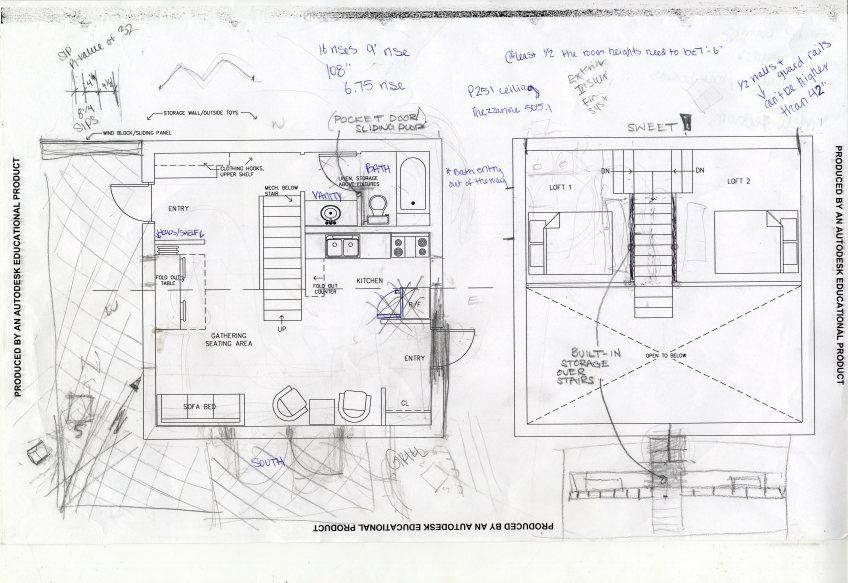 SIP
R-value of 32
8 1/4
SIPS
16 rises 9' rise
108"
6.75 rise
@ least 1/2 the room heights need to be 7'-6"
P251 ceiling
Mezzanine 505.1
Exterior
1/2 walls +
guard rails
can't be higher
than 42"
STORAGE WALL/OUTSIDE TOYS
WIND BLOCK/SLIDING PANEL
(POCKET DOOR/
SLIDING DOOR)
SWEET!
N
CLOTHING HOOKS,
UPPER SHELF
BATH
LINEN, STORAGE
ABOVE FIXTURES
* Bath entry
out of the way
MECH. BELOW
STAIR
VANITY
ENTRY
HOOKS/SHELF
FOLD OUT
TABLE
FOLD OUT
COUNTER
KITCHEN
R/F
E
UP
GATHERING
SEATING AREA
ENTRY
SOFA BED
CL
SOUTH
LOFT 1
DN
DN
LOFT 2
OPEN TO BELOW
BUILT-IN
STORAGE
OVER
STAIRS
PRODUCED BY AN AUTODESK EDUCATIONAL PRODUCT
PRODUCED BY AN AUTODESK EDUCATIONAL PRODUCT
PRODUCED BY AN AUTODESK EDUCATIONAL PRODUCT